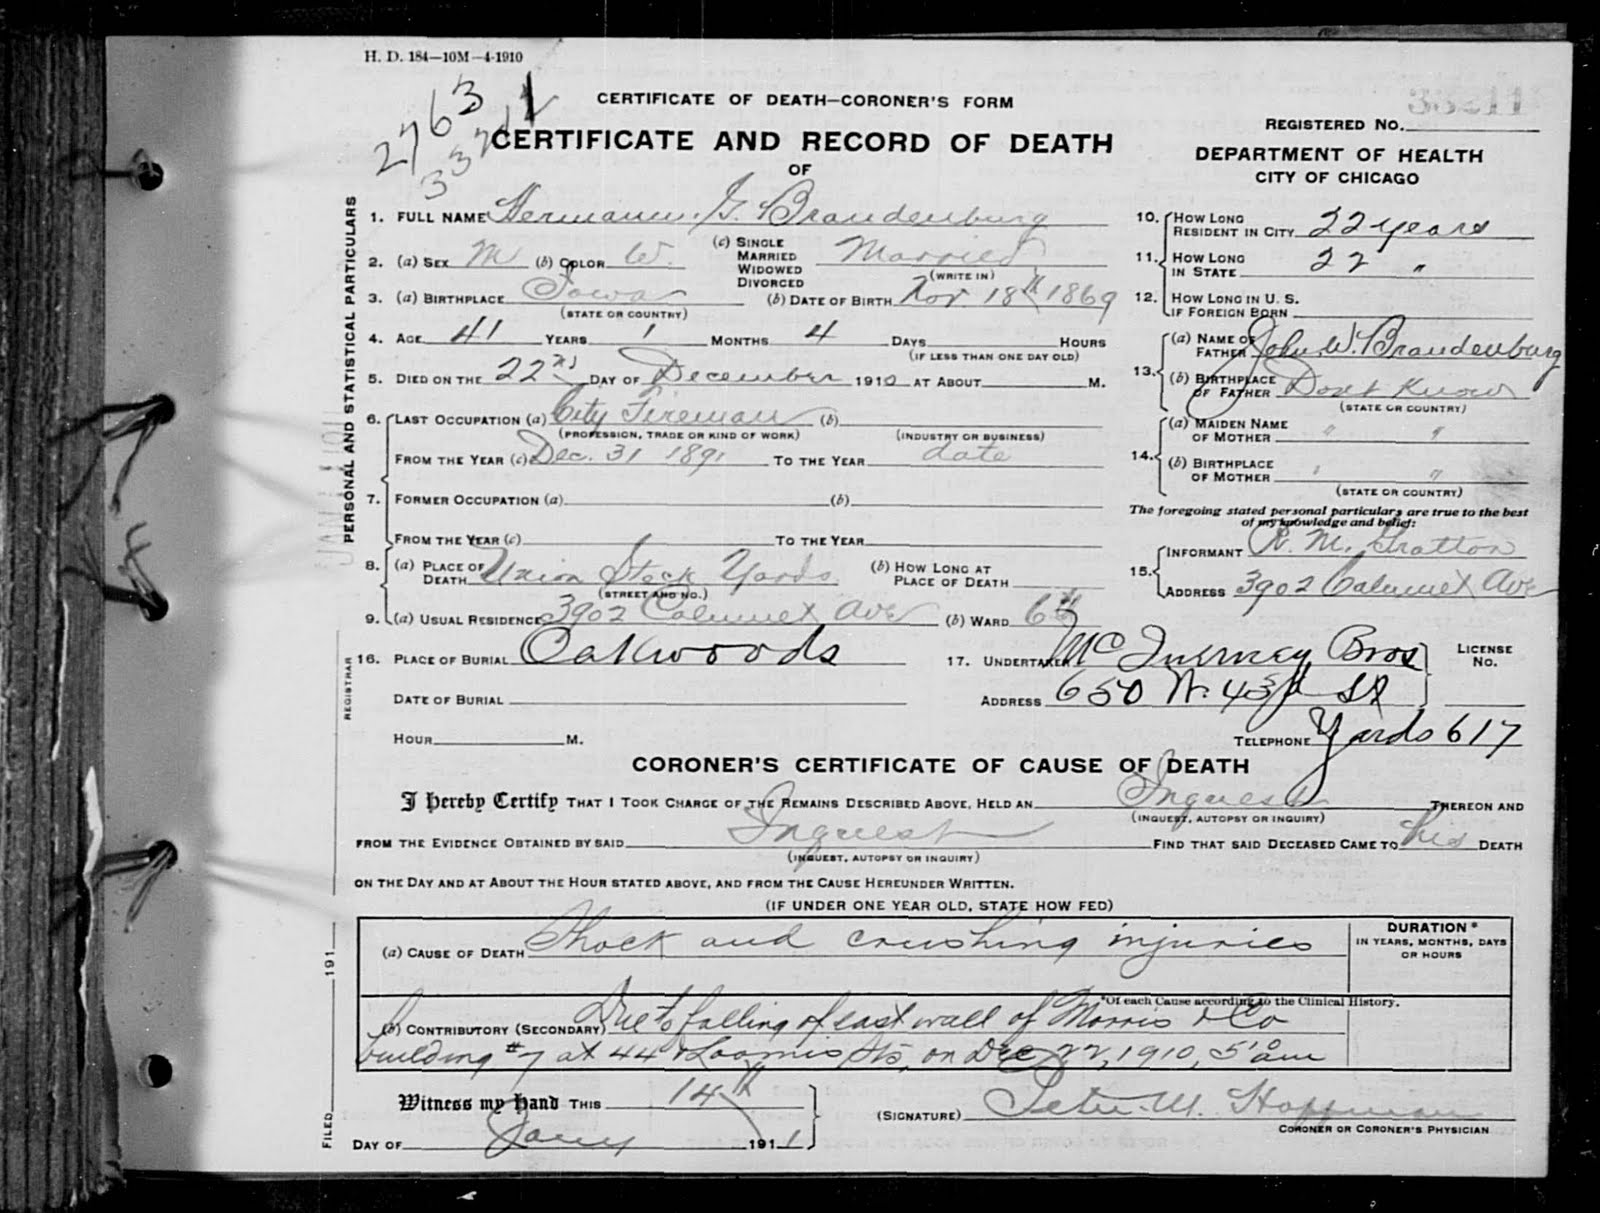 H. D. 184—10M—4-1910
2763 1
CERTIFICATE OF DEATH—CORONER'S FORM
33211
REGISTERED NO.
CERTIFICATE AND RECORD OF DEATH
OF
DEPARTMENT OF HEALTH
CITY OF CHICAGO
PERSONAL AND STATISTICAL PARTICULARS
1. FULL NAME Hermann G. Brandenburg
2. (a) SEX M (b) COLOR W. (c) SINGLE MARRIED WIDOWED DIVORCED Married
(WRITE IN)
3. (a) BIRTHPLACE Iowa (b) DATE OF BIRTH Nov 18th 1869
(STATE OR COUNTRY)
4. AGE 41 YEARS 1 MONTHS 4 DAYS HOURS
(IF LESS THAN ONE DAY OLD)
5. DIED ON THE 22nd DAY OF December 1910 AT ABOUT M.
6. LAST OCCUPATION (a) City Fireman (b)
(PROFESSION, TRADE OR KIND OF WORK) (INDUSTRY OR BUSINESS)
FROM THE YEAR (c) Dec. 31 1891 TO THE YEAR date
7. FORMER OCCUPATION (a) (b)
FROM THE YEAR (c) TO THE YEAR
8. (a) PLACE OF DEATH Union Stock Yards (b) HOW LONG AT PLACE OF DEATH
(STREET AND NO.)
9. (a) USUAL RESIDENCE 3902 Calumet Ave (b) WARD 6th
10. HOW LONG RESIDENT IN CITY 22 years
11. HOW LONG IN STATE 22 "
12. HOW LONG IN U. S. IF FOREIGN BORN
13. (a) NAME OF FATHER John W. Brandenburg
(b) BIRTHPLACE OF FATHER Dont Know
(STATE OR COUNTRY)
14. (a) MAIDEN NAME OF MOTHER " "
(b) BIRTHPLACE OF MOTHER " "
(STATE OR COUNTRY)
The foregoing stated personal particulars are true to the best
of my knowledge and belief:
15. INFORMANT R. M. Gratton
ADDRESS 3902 Calumet Ave
REGISTRAR
16. PLACE OF BURIAL Oakwoods
DATE OF BURIAL
HOUR M.
17. UNDERTAKER McInerney Bros LICENSE NO.
ADDRESS 650 W. 43rd St
TELEPHONE Yards 617
CORONER'S CERTIFICATE OF CAUSE OF DEATH
I hereby Certify THAT I TOOK CHARGE OF THE REMAINS DESCRIBED ABOVE, HELD AN Inquest THEREON AND
(INQUEST, AUTOPSY OR INQUIRY)
FROM THE EVIDENCE OBTAINED BY SAID Inquest FIND THAT SAID DECEASED CAME TO his DEATH
(INQUEST, AUTOPSY OR INQUIRY)
ON THE DAY AND AT ABOUT THE HOUR STATED ABOVE, AND FROM THE CAUSE HEREUNDER WRITTEN.
(IF UNDER ONE YEAR OLD, STATE HOW FED)
(a) CAUSE OF DEATH Shock and crushing injuries
DURATION*
IN YEARS, MONTHS, DAYS
OR HOURS
*Of each Cause according to the Clinical History.
(b) CONTRIBUTORY (SECONDARY) Due to falling of east wall of Morris & Co
building #7 at 44 & Loomis Sts, on Dec 22, 1910, 5 am
FILED 191
Witness my hand THIS 14th
DAY OF Jany 1911
(SIGNATURE) Peter M. Hoffman
CORONER OR CORONER'S PHYSICIAN